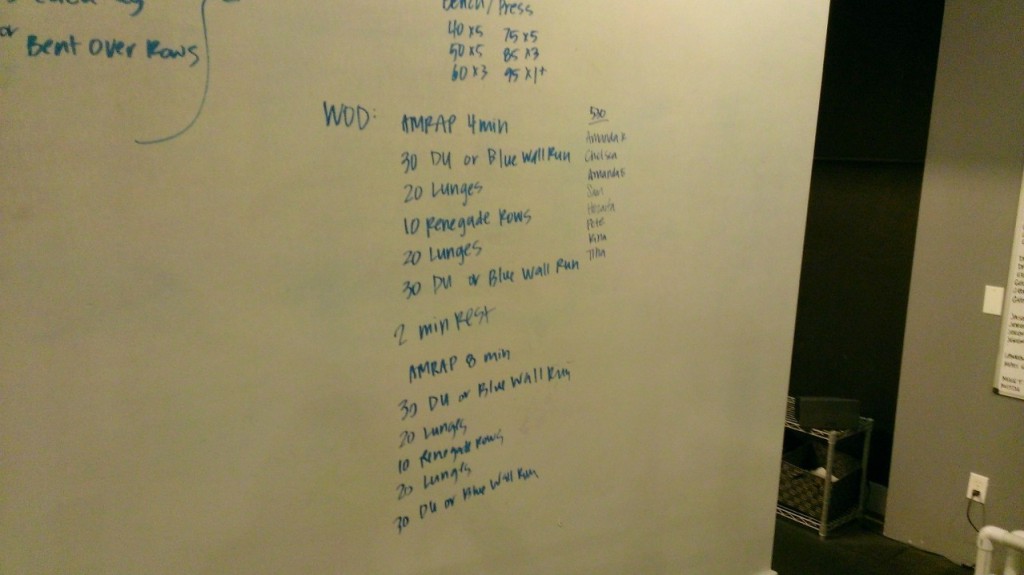 or
Bent Over Rows
Bench/Press
40x5 75x5
50x5 85x3
60x3 95x1+
WOD:
AMRAP 4 min
30 DU or Blue Wall Run
20 Lunges
10 Renegade Rows
20 Lunges
30 DU or Blue Wall Run
2 min Rest
AMRAP 8 min
30 DU or Blue Wall Run
20 Lunges
10 Renegade Rows
20 Lunges
30 DU or Blue Wall Run
530
Amanda R
Chelsea
Amanda S
Sam
Pete